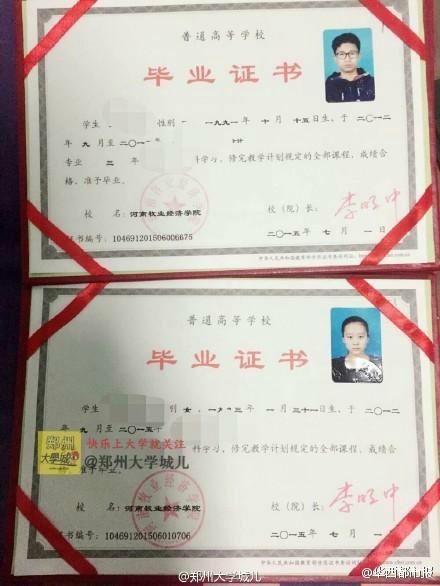 普通高等学校
毕业证书
学生 性别 一九九一年 十月 十五日生，于 二〇一二
年 九月至 二〇一
专业 三 年 科学习，修完教学计划规定的全部课程，成绩合
格，准予毕业。
校 名：河南牧业经济学院 校（院）长：李明中
证书编号：104691201506006675 二〇一五年 七月 一日
普通高等学校
毕业证书
学生 别 女，一九 三年 一月 三十一日生，于 二〇一二
年 九月至 二〇一五年
郑州 快乐上大学就关注 科学习，修完教学计划规定的全部课程，成绩合
大学城 @郑州大学城儿
准予毕业。
校 名：河南牧业经济学院 校（院）长：李明中
证书编号：104691201506010706 二〇一五年 七月 一
@郑州大学城儿
@华西都市报